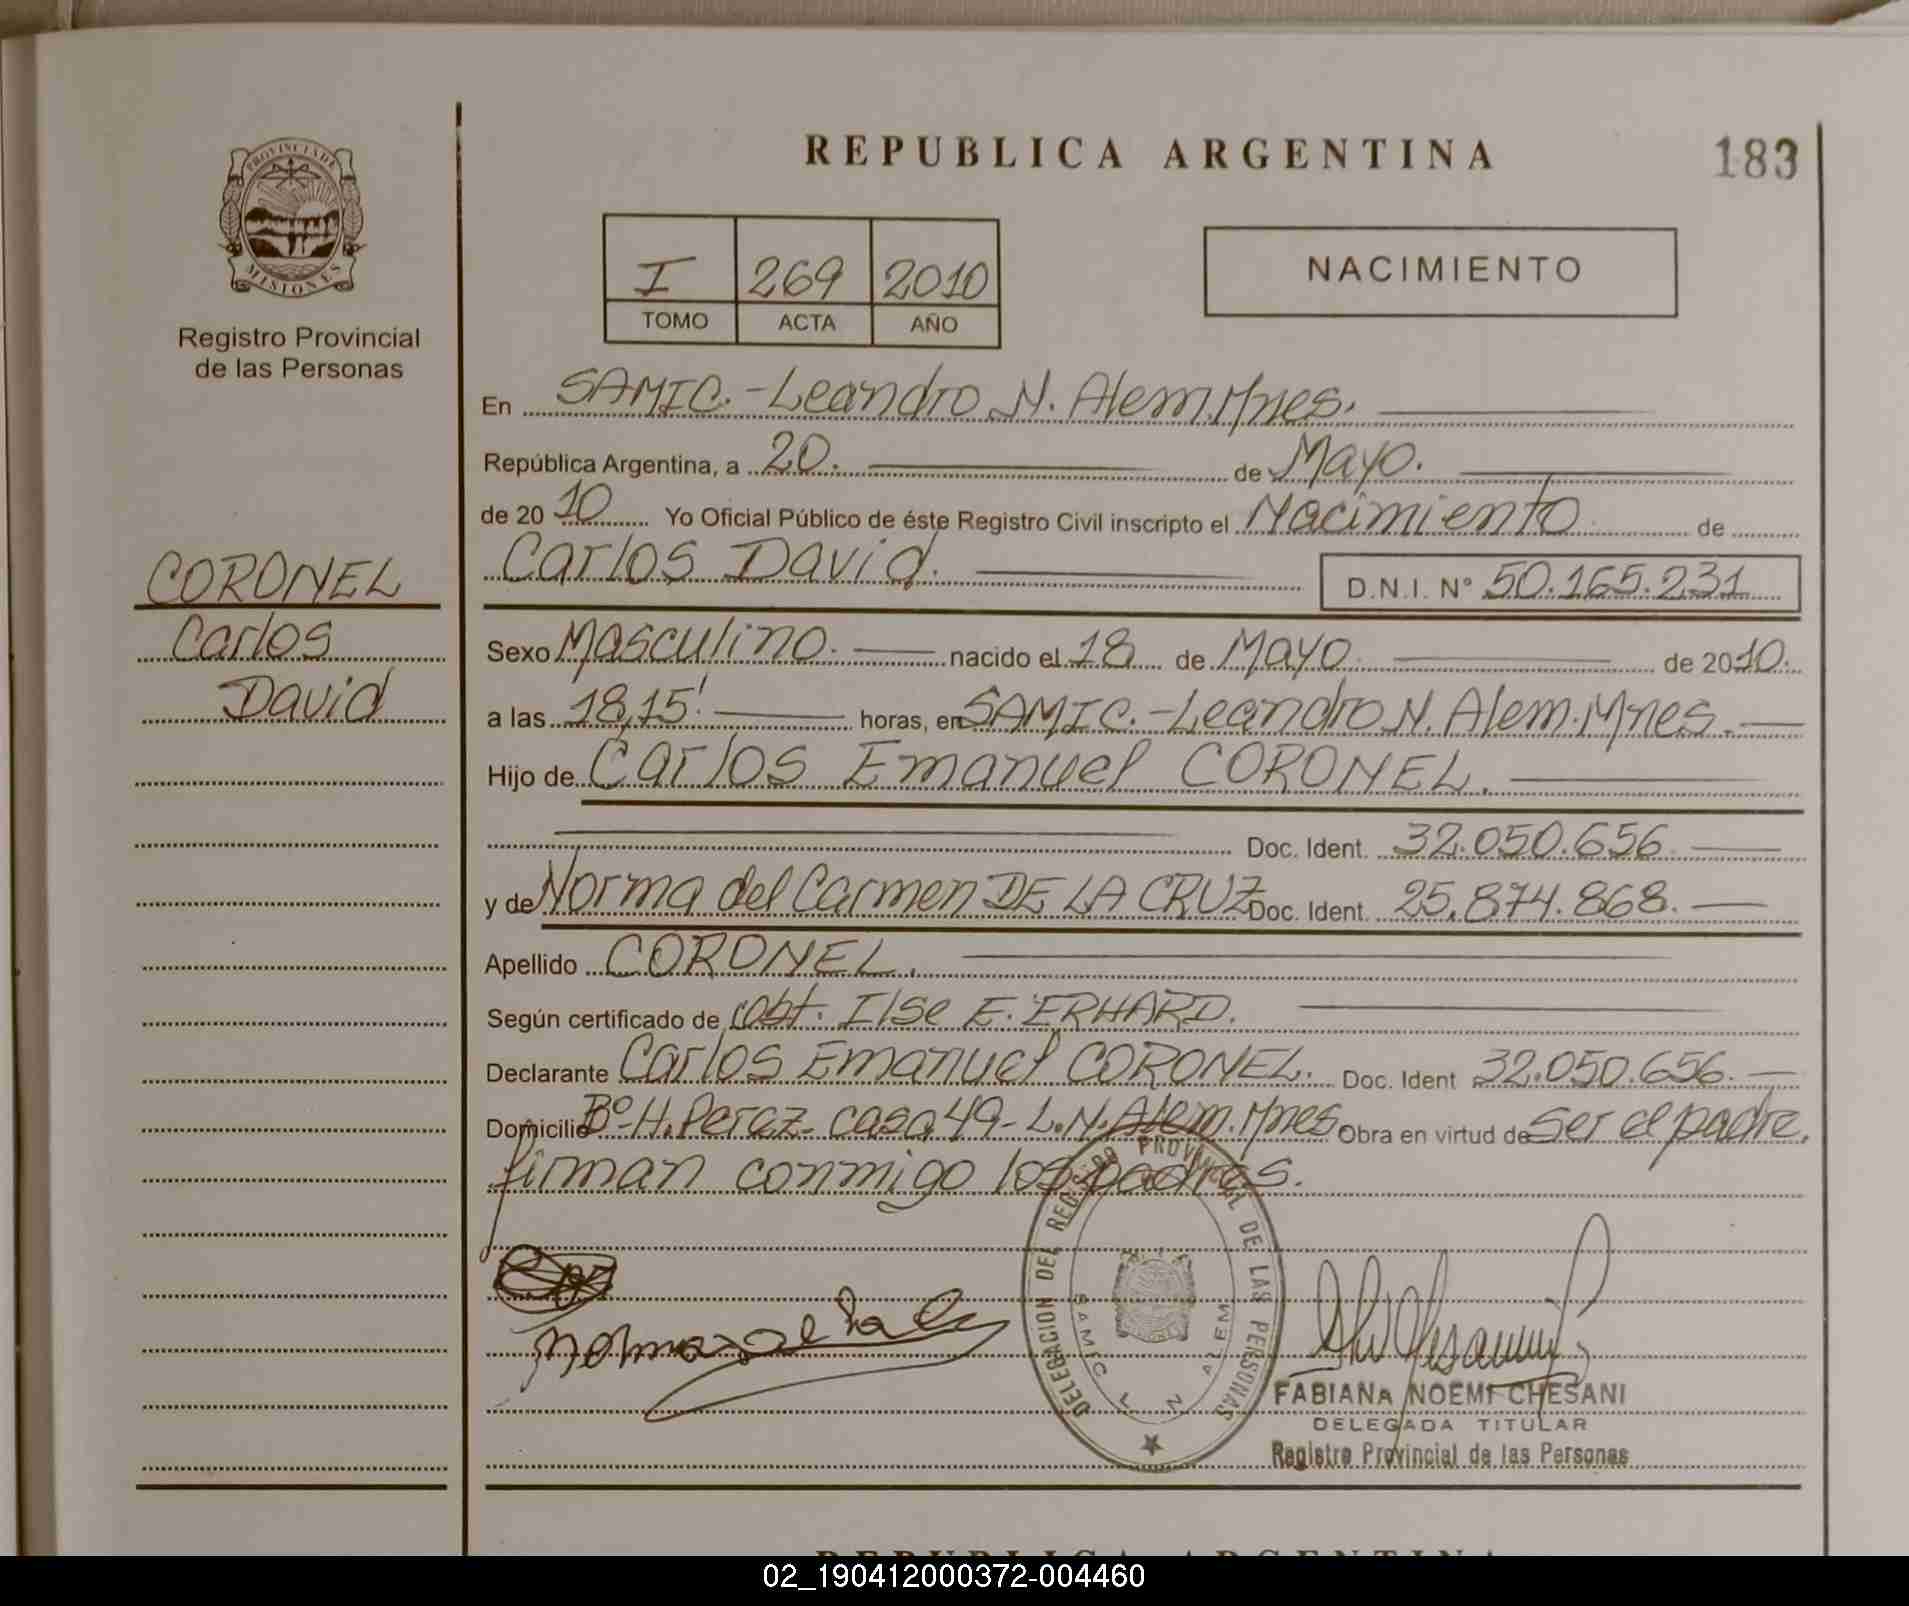 REPUBLICA ARGENTINA
183
PROVINCIA DE
MISIONES
Registro Provincial
de las Personas
I 269 2010
TOMO ACTA AÑO
NACIMIENTO
En SAMIC.-Leandro N. Alem.Mnes.
República Argentina, a 20. de Mayo.
de 2010 Yo Oficial Público de éste Registro Civil inscripto el Nacimiento de
Carlos David. D.N.I. N° 50.165.231
CORONEL
Carlos
David
Sexo Masculino. nacido el 18 de Mayo. de 2010.
a las 18,15' horas, en SAMIC.-Leandro N. Alem.Mnes.
Hijo de Carlos Emanuel CORONEL.
Doc. Ident. 32.050.656.
y de Norma del Carmen DE LA CRUZ Doc. Ident. 25.874.868.
Apellido CORONEL.
Según certificado de obt. Ilse E. ERHARD.
Declarante Carlos Emanuel CORONEL. Doc. Ident 32.050.656.
Domicilio B°-H.Perez- casa 49- L.N.Alem.Mnes. Obra en virtud de ser el padre.
firman conmigo los padres.
DELEGACION DEL REGISTRO PROVINCIAL DE LAS PERSONAS
SAMIC L N ALEM
FABIANA NOEMI CHESANI
DELEGADA TITULAR
Registro Provincial de las Personas
REPUBLICA ARGENTINA
02_190412000372-004460